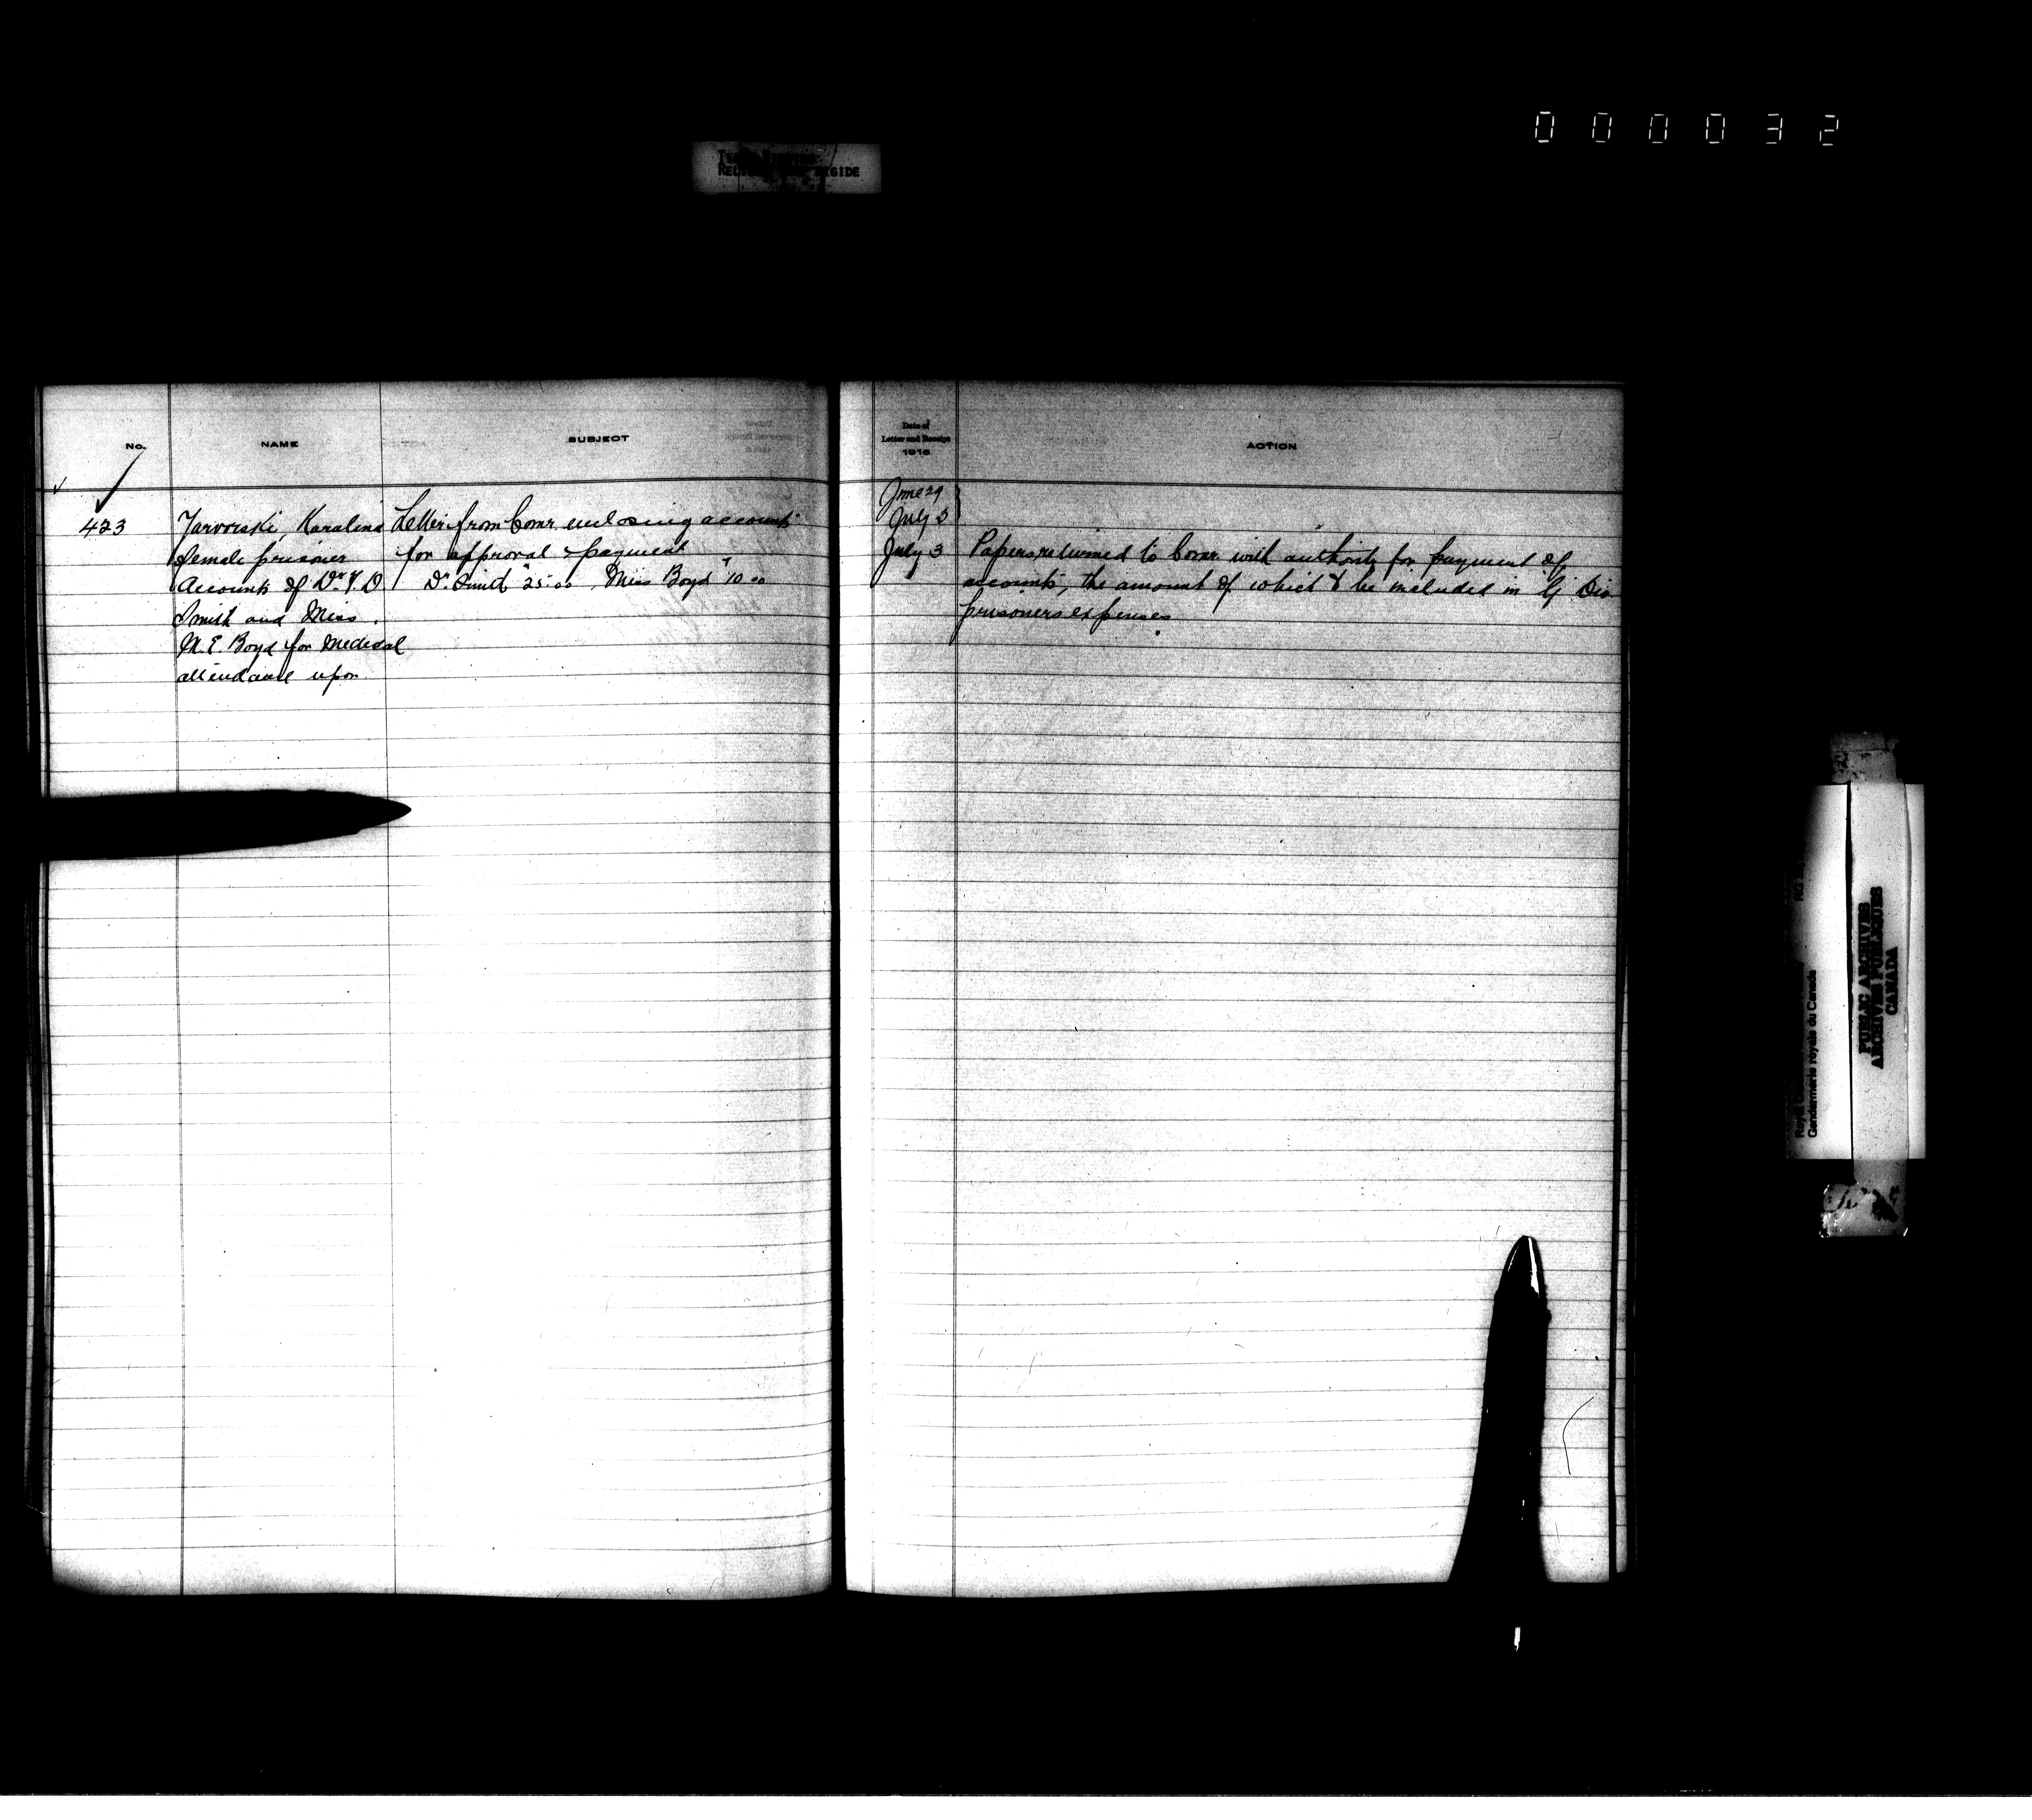 000032
RIGIDE
No.
NAME
SUBJECT
423
Yarvorski, Karalina
female prisoner
Accounts of Dr. Y. D.
Smith and Miss.
M. E. Boyd for medical
attendance upon
Letter from Comr. enclosing accounts
for approval & payment
Dr. Smith $25.00, Miss Boyd $10.00
Date of
Letter and Receipt
1918
ACTION
June 29
July 3
July 3
Papers returned to Comr. with authority for payment of
accounts, the amount of which to be included in "G" Div.
prisoners expenses.
PUBLIC ARCHIVES
ARCHIVES PUBLIQUES
CANADA
Gendarmerie royale du Canada